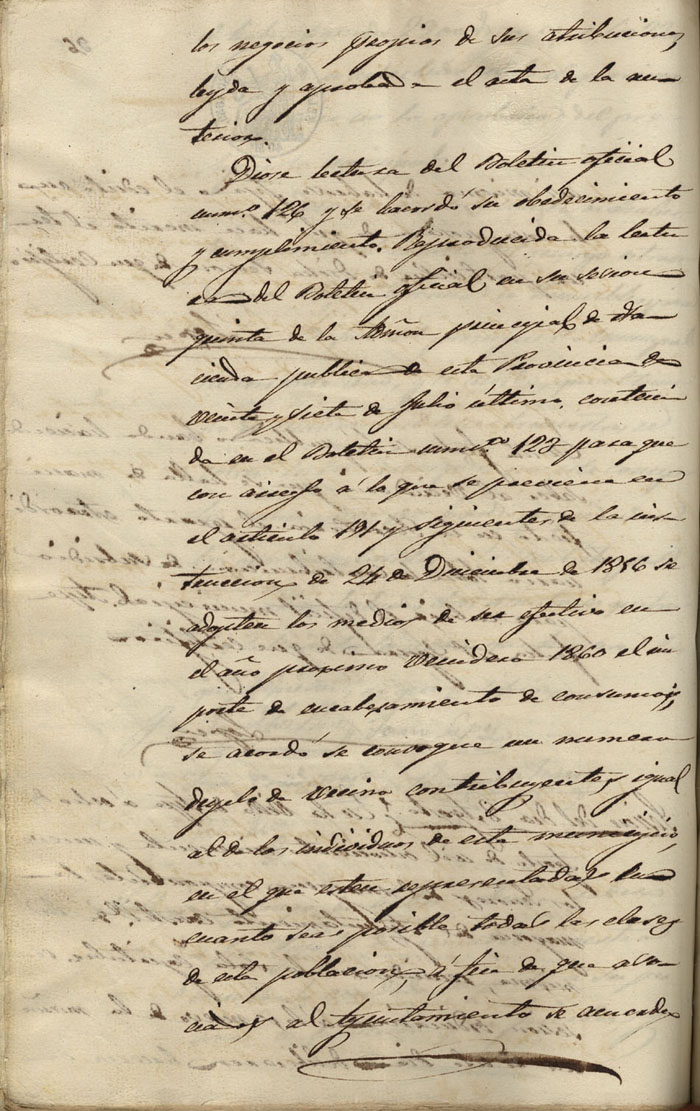 los negocios propios de sus atribuciones,
leyda y aprobada el acta de la an-
terior.
Diose lectura del Boletin oficial
num.º 126 y se acordó su obedecimiento
y cumplimiento. Reproducida la lectu
ra del Boletin oficial en su secion
quinta de la Admon principal de Ha
cienda publica de esta Provincia de
veinte y siete de Julio último, conteni
da en el Boletin num.º 123 para que
con arreglo á lo que se previene en
el articulo 191 y siguientes de la ins
truccion de 24 de Diciembre de 1856 se
adopten los medios de ser efectivo en
el año procsimo venidero 1860 el im
porte de encabezamiento de consumos,
se acordó se convoque un numero
de vecinos contribuyentes igual
al de los individuos de este municipio,
en el que esten representadas en
cuanto sea posible todas las clases
de esta poblacion, á fin de que aso
ciados al Ayuntamiento se acuerde